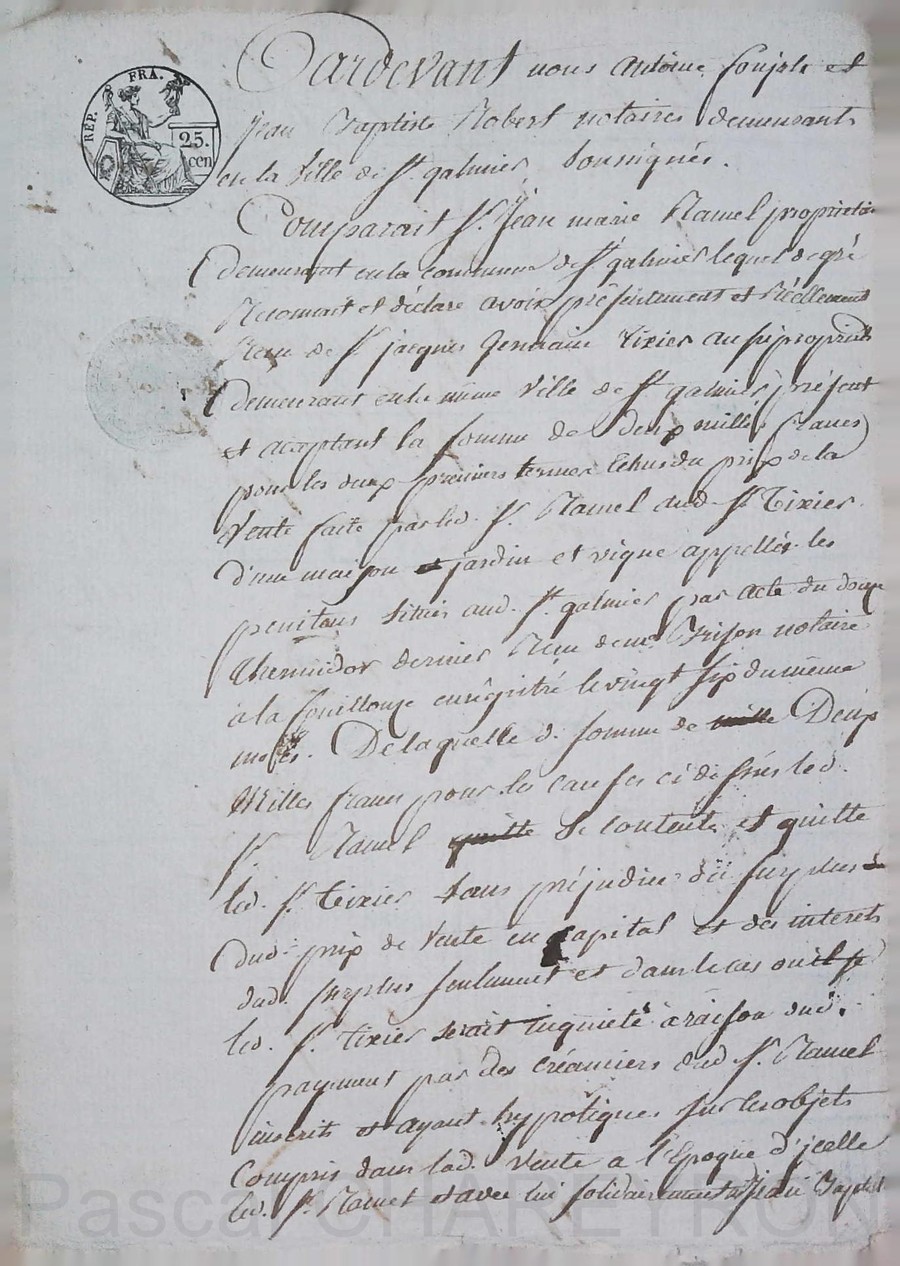 REP. FRA.
25.
cen
Pardevant nous Antoine Soujole et
Jean Baptiste Robert notaires demeurants
en la ville de St. galmier, soussignés.
Comparait Sr. Jean marie Ramel proprietai
demeurant en la commune de St galmier lequel de gré
Reconnait et déclare avoir présentement et Réellement
Recu de Sr jacques Germain Tixier aussi propriét
demeurant en la même ville de St galmier présent
et aceptant la somme de deux milles francs
pour les deux premiers termes Echus du prix de la
Vente faite par led. Sr. Ramel aud. Sr Tixier
d'une maison et jardin et vigne appellés les
penitans situés aud. St. galmier par acte du douze
thermidor dernier Recu de me. Frison notaire
a la fouillouze enrégistré le vingt six du même
mois. De laquelle d. somme de mille Deux
Milles francs pour les causes ci dessus led.
Sr. Ramel quitte se contente et quitte
led. Sr. Tixier sans préjudice du surplus
dud. prix de Vente en capital et des interets
dud. surplus seulement et dans le cas ou il se
led. Sr. Tixier serait inquieté a raison dud.
payement par des créanciers dud Sr. Ramel
inscrits et ayant hypotiques sur les objets
Compris dans lad. Vente a l'Epoque d'icelle
led. Sr. Ramel et avec lui solidairement Jean Baptist
Pascal CHAREYRON